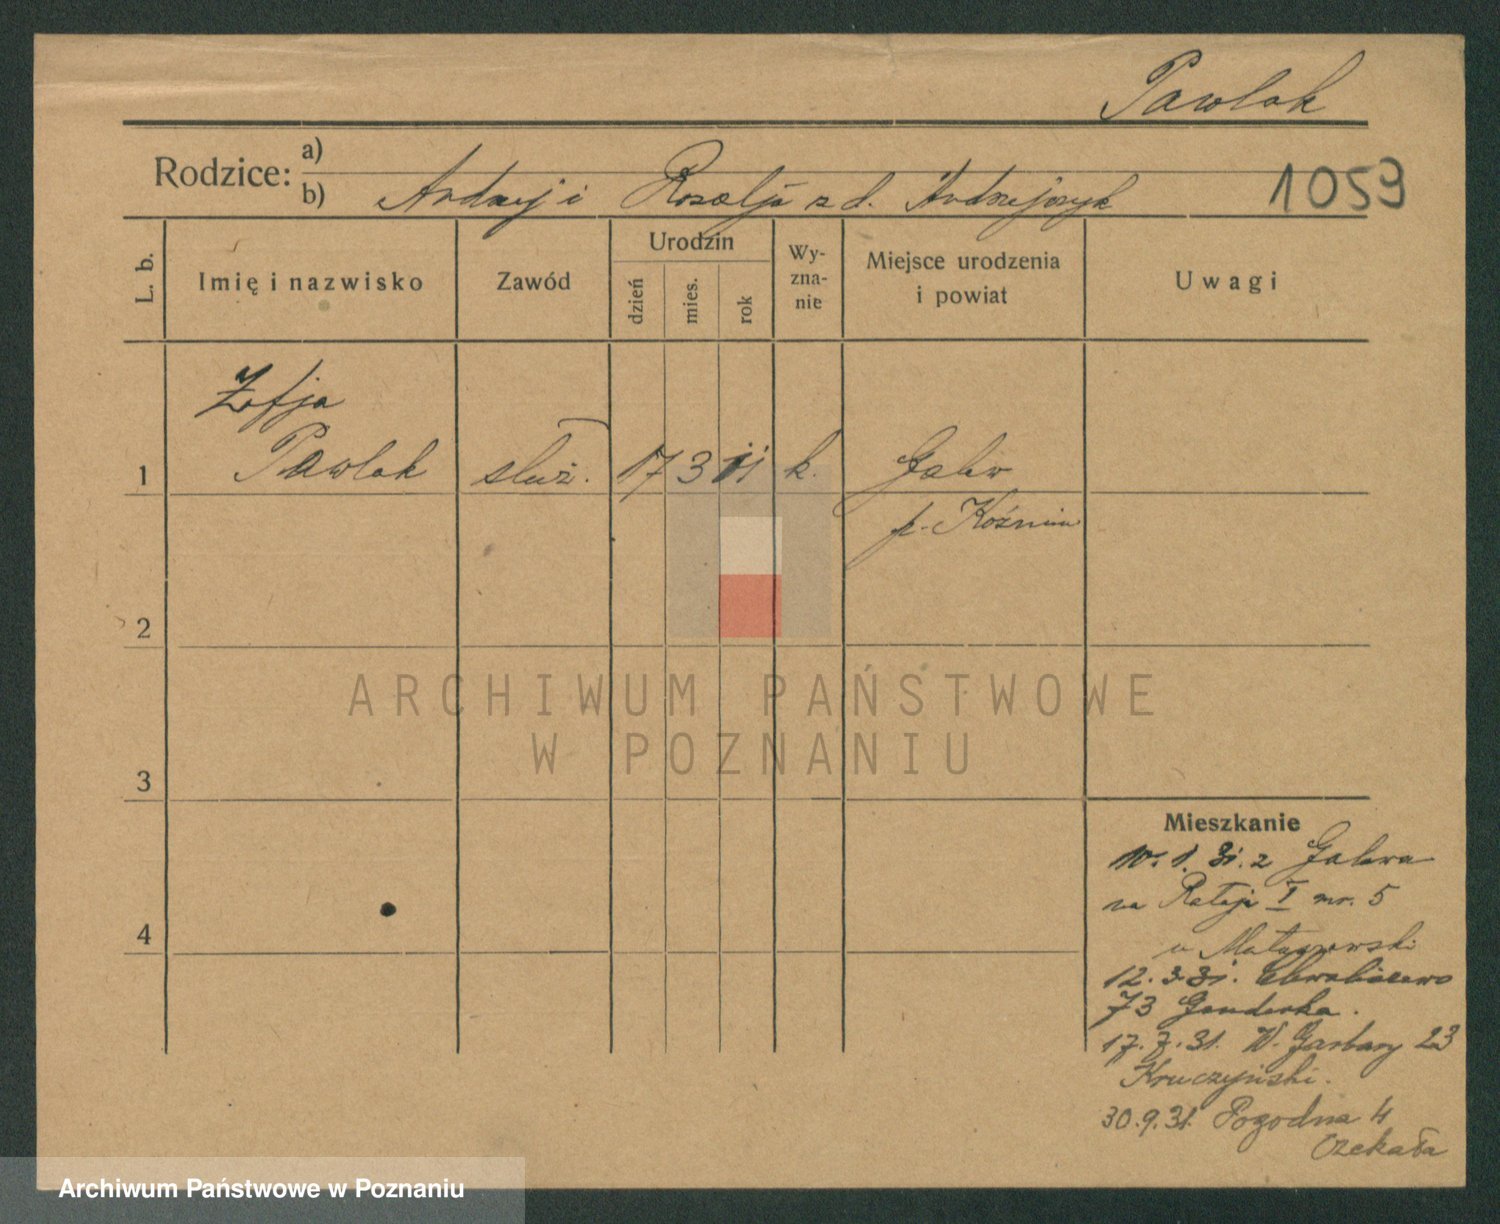 Pawlak
Rodzice: a)
b) Andrzej i Rozalja z d. Andrzejczyk
1059
L. b.
Imię i nazwisko
Zawód
Urodzin
dzień
mies.
rok
Wy-
zna-
nie
Miejsce urodzenia
i powiat
Uwagi
Zofja
1 Pawlak służ. 17 3 11 k. Galew
p. Koźmin
2
3
4
ARCHIWUM PAŃSTWOWE
W POZNANIU
Mieszkanie
10. 1. 31. z Galewa
na Rataje I nr. 5
u
12. 3. 31.
73
17. 7. 31. W. Garbary 23
Kruczyński.
30.9.31. Pogodna 4
Czekała
Archiwum Państwowe w Poznaniu